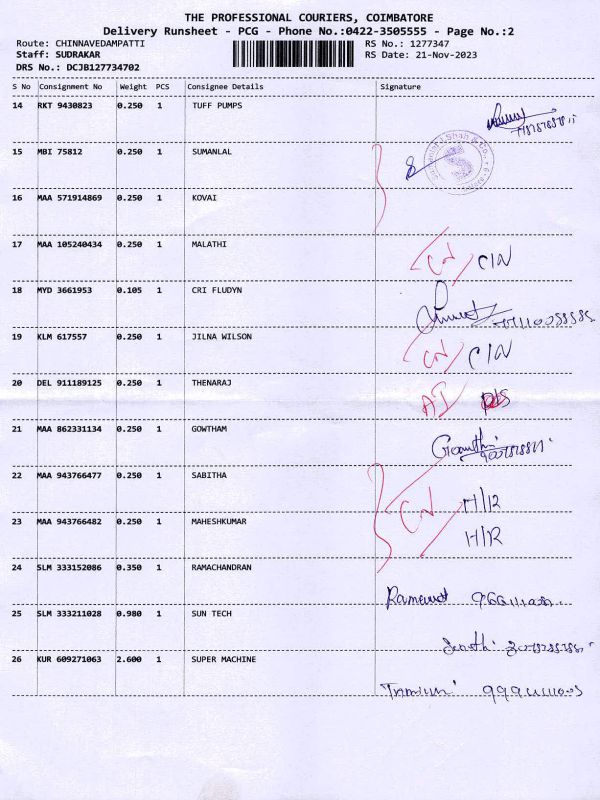 THE PROFESSIONAL COURIERS, COIMBATORE
Delivery Runsheet - PCG - Phone No.:0422-3505555 - Page No.:2
Route: CHINNAVEDAMPATTI RS No.: 1277347
Staff: SUDRAKAR RS Date: 21-Nov-2023
DRS No.: DCJB127734702
S No Consignment No Weight PCS Consignee Details Signature
14 RKT 9430823 0.250 1 TUFF PUMPS
15 MBI 75812 0.250 1 SUMANLAL
16 MAA 571914869 0.250 1 KOVAI
17 MAA 105240434 0.250 1 MALATHI CIN
18 MYD 3661953 0.105 1 CRI FLUDYN
19 KLM 617557 0.250 1 JILNA WILSON CIN
20 DEL 911189125 0.250 1 THENARAJ
21 MAA 862331134 0.250 1 GOWTHAM
22 MAA 943766477 0.250 1 SABITHA
23 MAA 943766482 0.250 1 MAHESHKUMAR
24 SLM 333152086 0.350 1 RAMACHANDRAN
25 SLM 333211028 0.980 1 SUN TECH
26 KUR 609271063 2.600 1 SUPER MACHINE